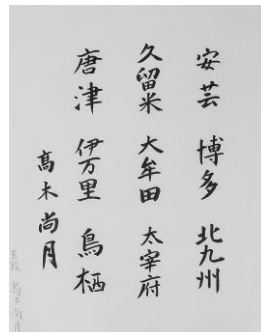 安芸 博多 北九州
久留米 大牟田 太宰府
唐津 伊万里 鳥栖
髙木尚月